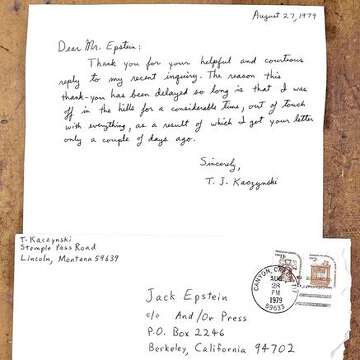 August 27, 1979
Dear Mr. Epstein:
Thank you for your helpful and courtious
reply to my recent inquiry. The reason this
thank-you has been delayed so long is that I was
off in the hills for a considerable time, out of touch
with everything, as a result of which I got your letter
only a couple of days ago.
Sincerely,
T. J. Kaczynski
T. Kaczynski
Stemple Pass Road
Lincoln, Montana 59639
AUG
28
PM
1979
59633
Jack Epstein
c/o And/Or Press
P.O. Box 2246
Berkeley, California 94702